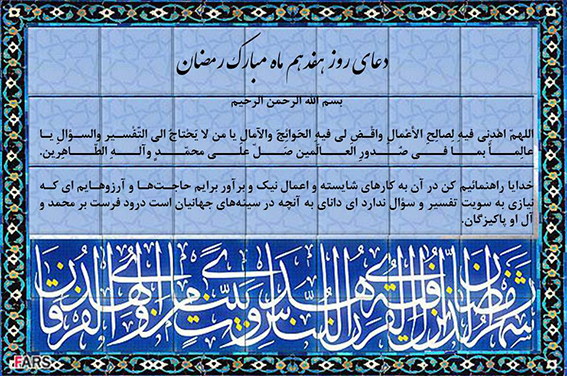 دعای روز هفدهم ماه مبارک رمضان
بسم الله الرحمن الرحیم
اللهمّ اهْدِنی فیهِ لِصالِحِ الأعْمالِ واقْضِ لی فیهِ الحَوائِجَ والآمالِ یا من لا یَحْتاجُ الی التّفْسیر والسؤالِ یـا
عالِمـاً بمـا فــی صُـدورِ العــالَمین صَـلّ عَلــی محمّــدٍ وآلــهِ الطّــاهِرین.
خدایا راهنمائیم کن در آن به کارهای شایسته و اعمال نیک و برآور برایم حاجت‌ها و آرزوهایم ای که
نیازی به سویت تفسیر و سؤال ندارد ای دانای به آنچه در سینه‌های جهانیان است درود فرست بر محمد و
آل او پاکیزگان.
شهر رمضان الذی انزل فیه القرآن هدی للناس و بینت من الهدی و الفرقان
FARS